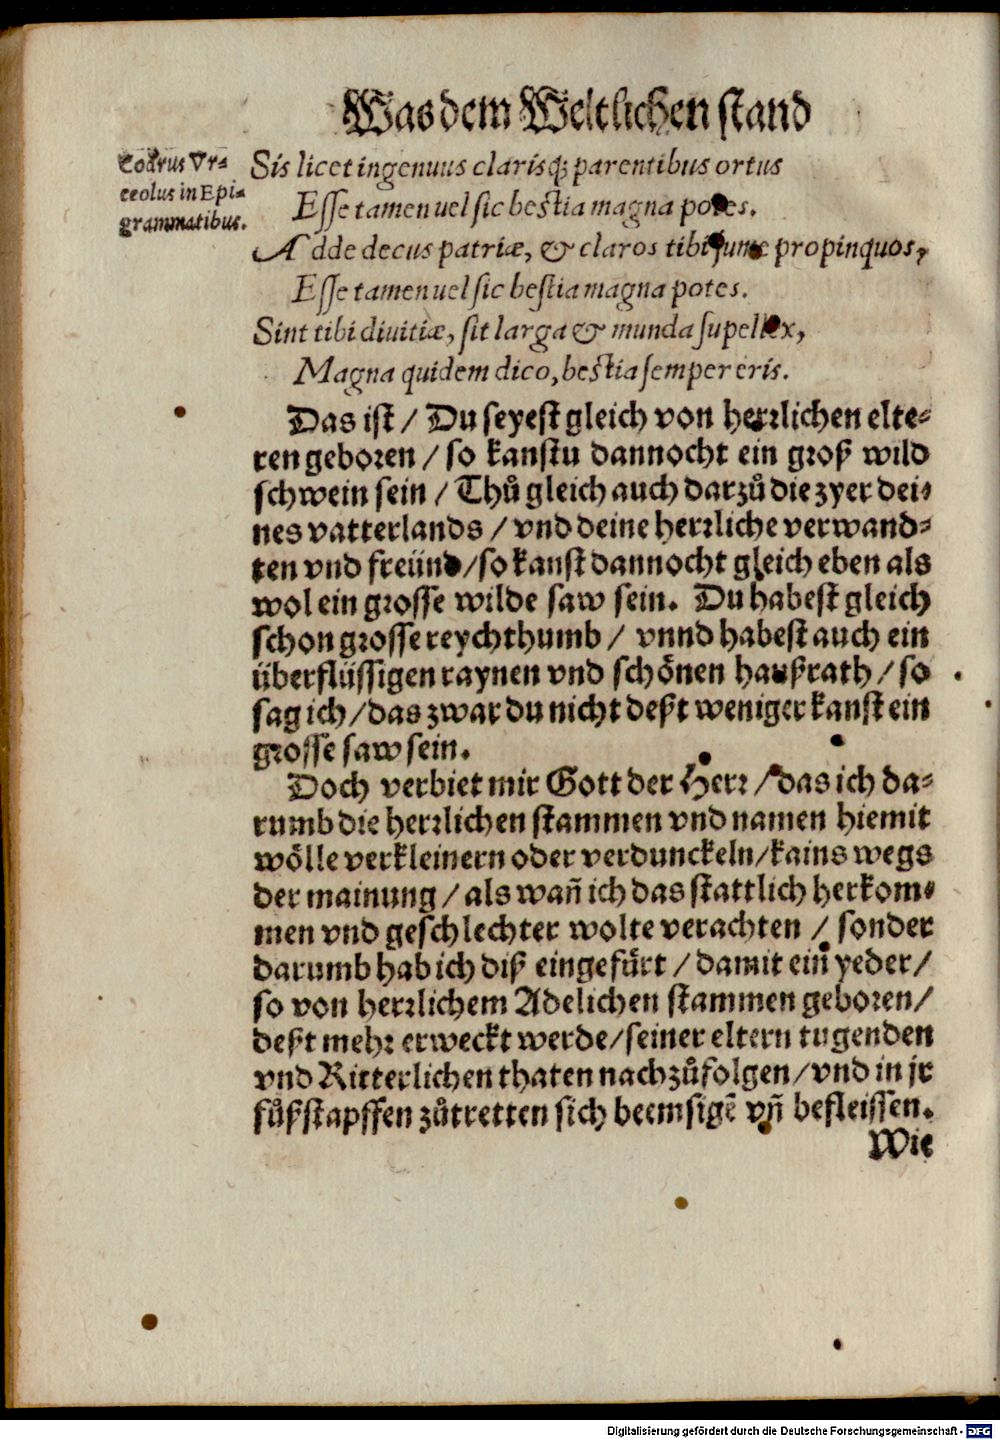 Was dem Weltlichen stand
Codrus Vr=
ceolus in Epi=
grammatibus.
Sis licet ingenuus clarisq́; parentibus ortus
Esse tamen uel sic bestia magna potes.
Adde decus patriæ, & claros tibi sume propinquos,
Esse tamen uel sic bestia magna potes.
Sint tibi diuitiæ, sit larga & munda supellex,
Magna quidem dico, bestia semper eris.
Das ist / Du seyest gleich von herrlichen elte=
ren geboren / so kanstu dannocht ein groß wild
schwein sein / Thů gleich auch darzů die zyer dei=
nes vatterlands / vnd deine herrliche verwand=
ten vnd freünd / so kanst dannocht gleich eben als
wol ein grosse wilde saw sein. Du habest gleich
schon grosse reychthumb / vnnd habest auch ein
überflüssigen raynen vnd schönen haußrath / so
sag ich / das zwar du nicht deßt weniger kanst ein
grosse saw sein.
Doch verbiet mir Gott der Herr / das ich da=
rumb die herrlichen stammen vnd namen hiemit
wölle verkleinern oder verdunckeln / kains wegs
der mainung / als wañ ich das stattlich herkom=
men vnd geschlechter wolte verachten / sonder
darumb hab ich diß eingefürt / damit ein yeder /
so von herrlichem Adelichen stammen geboren /
deßt mehr erweckt werde / seiner eltern tugenden
vnd Ritterlichen thaten nachzůfolgen / vnd in jr
fůßstapffen zůtretten sich beemsigẽ vñ befleissen.
Wie
Digitalisierung gefördert durch die Deutsche Forschungsgemeinschaft - DFG